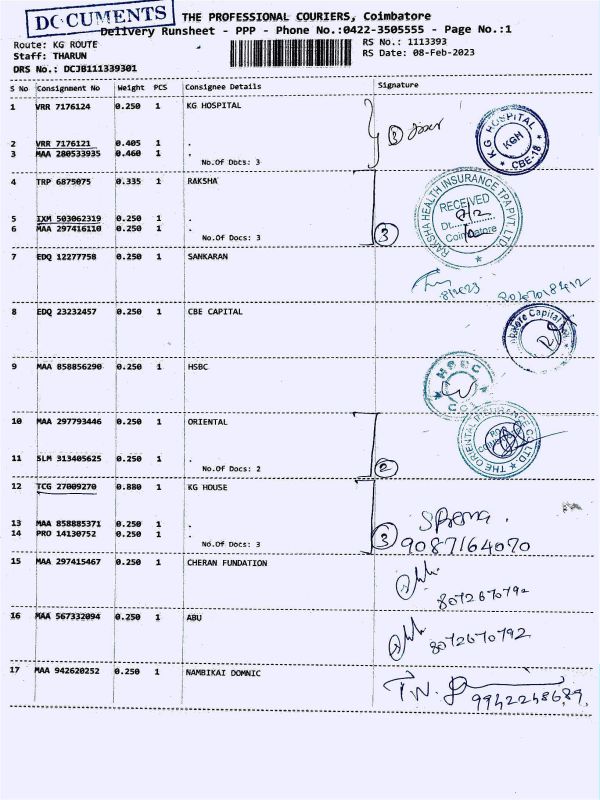 DOCUMENTS
THE PROFESSIONAL COURIERS, Coimbatore
Delivery Runsheet - PPP - Phone No.:0422-3505555 - Page No.:1
Route: KG ROUTE
RS No.: 1113393
Staff: THARUN
RS Date: 08-Feb-2023
DRS No.: DCJB111339301
S No Consignment No Weight PCS Consignee Details Signature
1 VRR 7176124 0.250 1 KG HOSPITAL
KG HOSPITAL KGH CBE-18
3
2 VRR 7176121 0.405 1 .
3 MAA 280533935 0.460 1 .
No.Of Docs: 3
4 TRP 6875075 0.335 1 RAKSHA
RAKSHA HEALTH INSURANCE TPA PVT. LTD.
RECEIVED
Dt. 8/2
Coimbatore
5 IXM 503062319 0.250 1 .
6 MAA 297416110 0.250 1 .
No.Of Docs: 3
3
7 EDQ 12277758 0.250 1 SANKARAN
8 EDQ 23232457 0.250 1 CBE CAPITAL
9 MAA 858856290 0.250 1 HSBC
10 MAA 297793446 0.250 1 ORIENTAL
THE ORIENTAL INSURANCE CO. LTD.
11 SLM 313405625 0.250 1 .
No.Of Docs: 2
2
12 TCG 27009270 0.880 1 KG HOUSE
13 MAA 858885371 0.250 1 .
14 PRO 14130752 0.250 1 .
No.Of Docs: 3
3
9087164070
15 MAA 297415467 0.250 1 CHERAN FUNDATION
8072670792
16 MAA 567332094 0.250 1 ABU
8072670792
17 MAA 942620252 0.250 1 NAMBIKAI DOMNIC
T.N.
9942248689